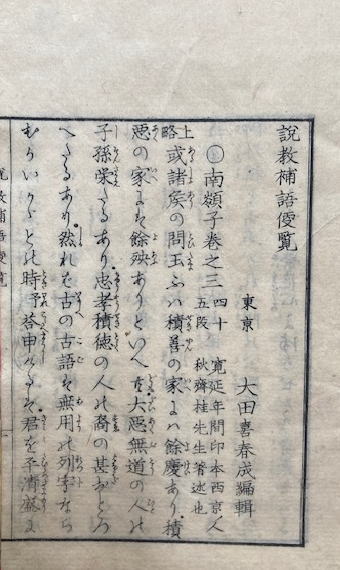 說教補語便覧
東京 大田喜春成編輯
○南纇子巻之三 四十五段 寛延年間印本西京ノ人秋齋桂先生著述也
上略 或諸矦の問玉ふハ積善の家にハ餘慶あり積
悪の家にハ餘殃ありといへども大悪無道の人の
子孫栄えるあり忠孝積徳の人の裔の甚おとろ
へたるあり然れば古の古語も無用の列字なら
むかいかゞとの時予荅申けるは君を予清盛に
說教補語便覧